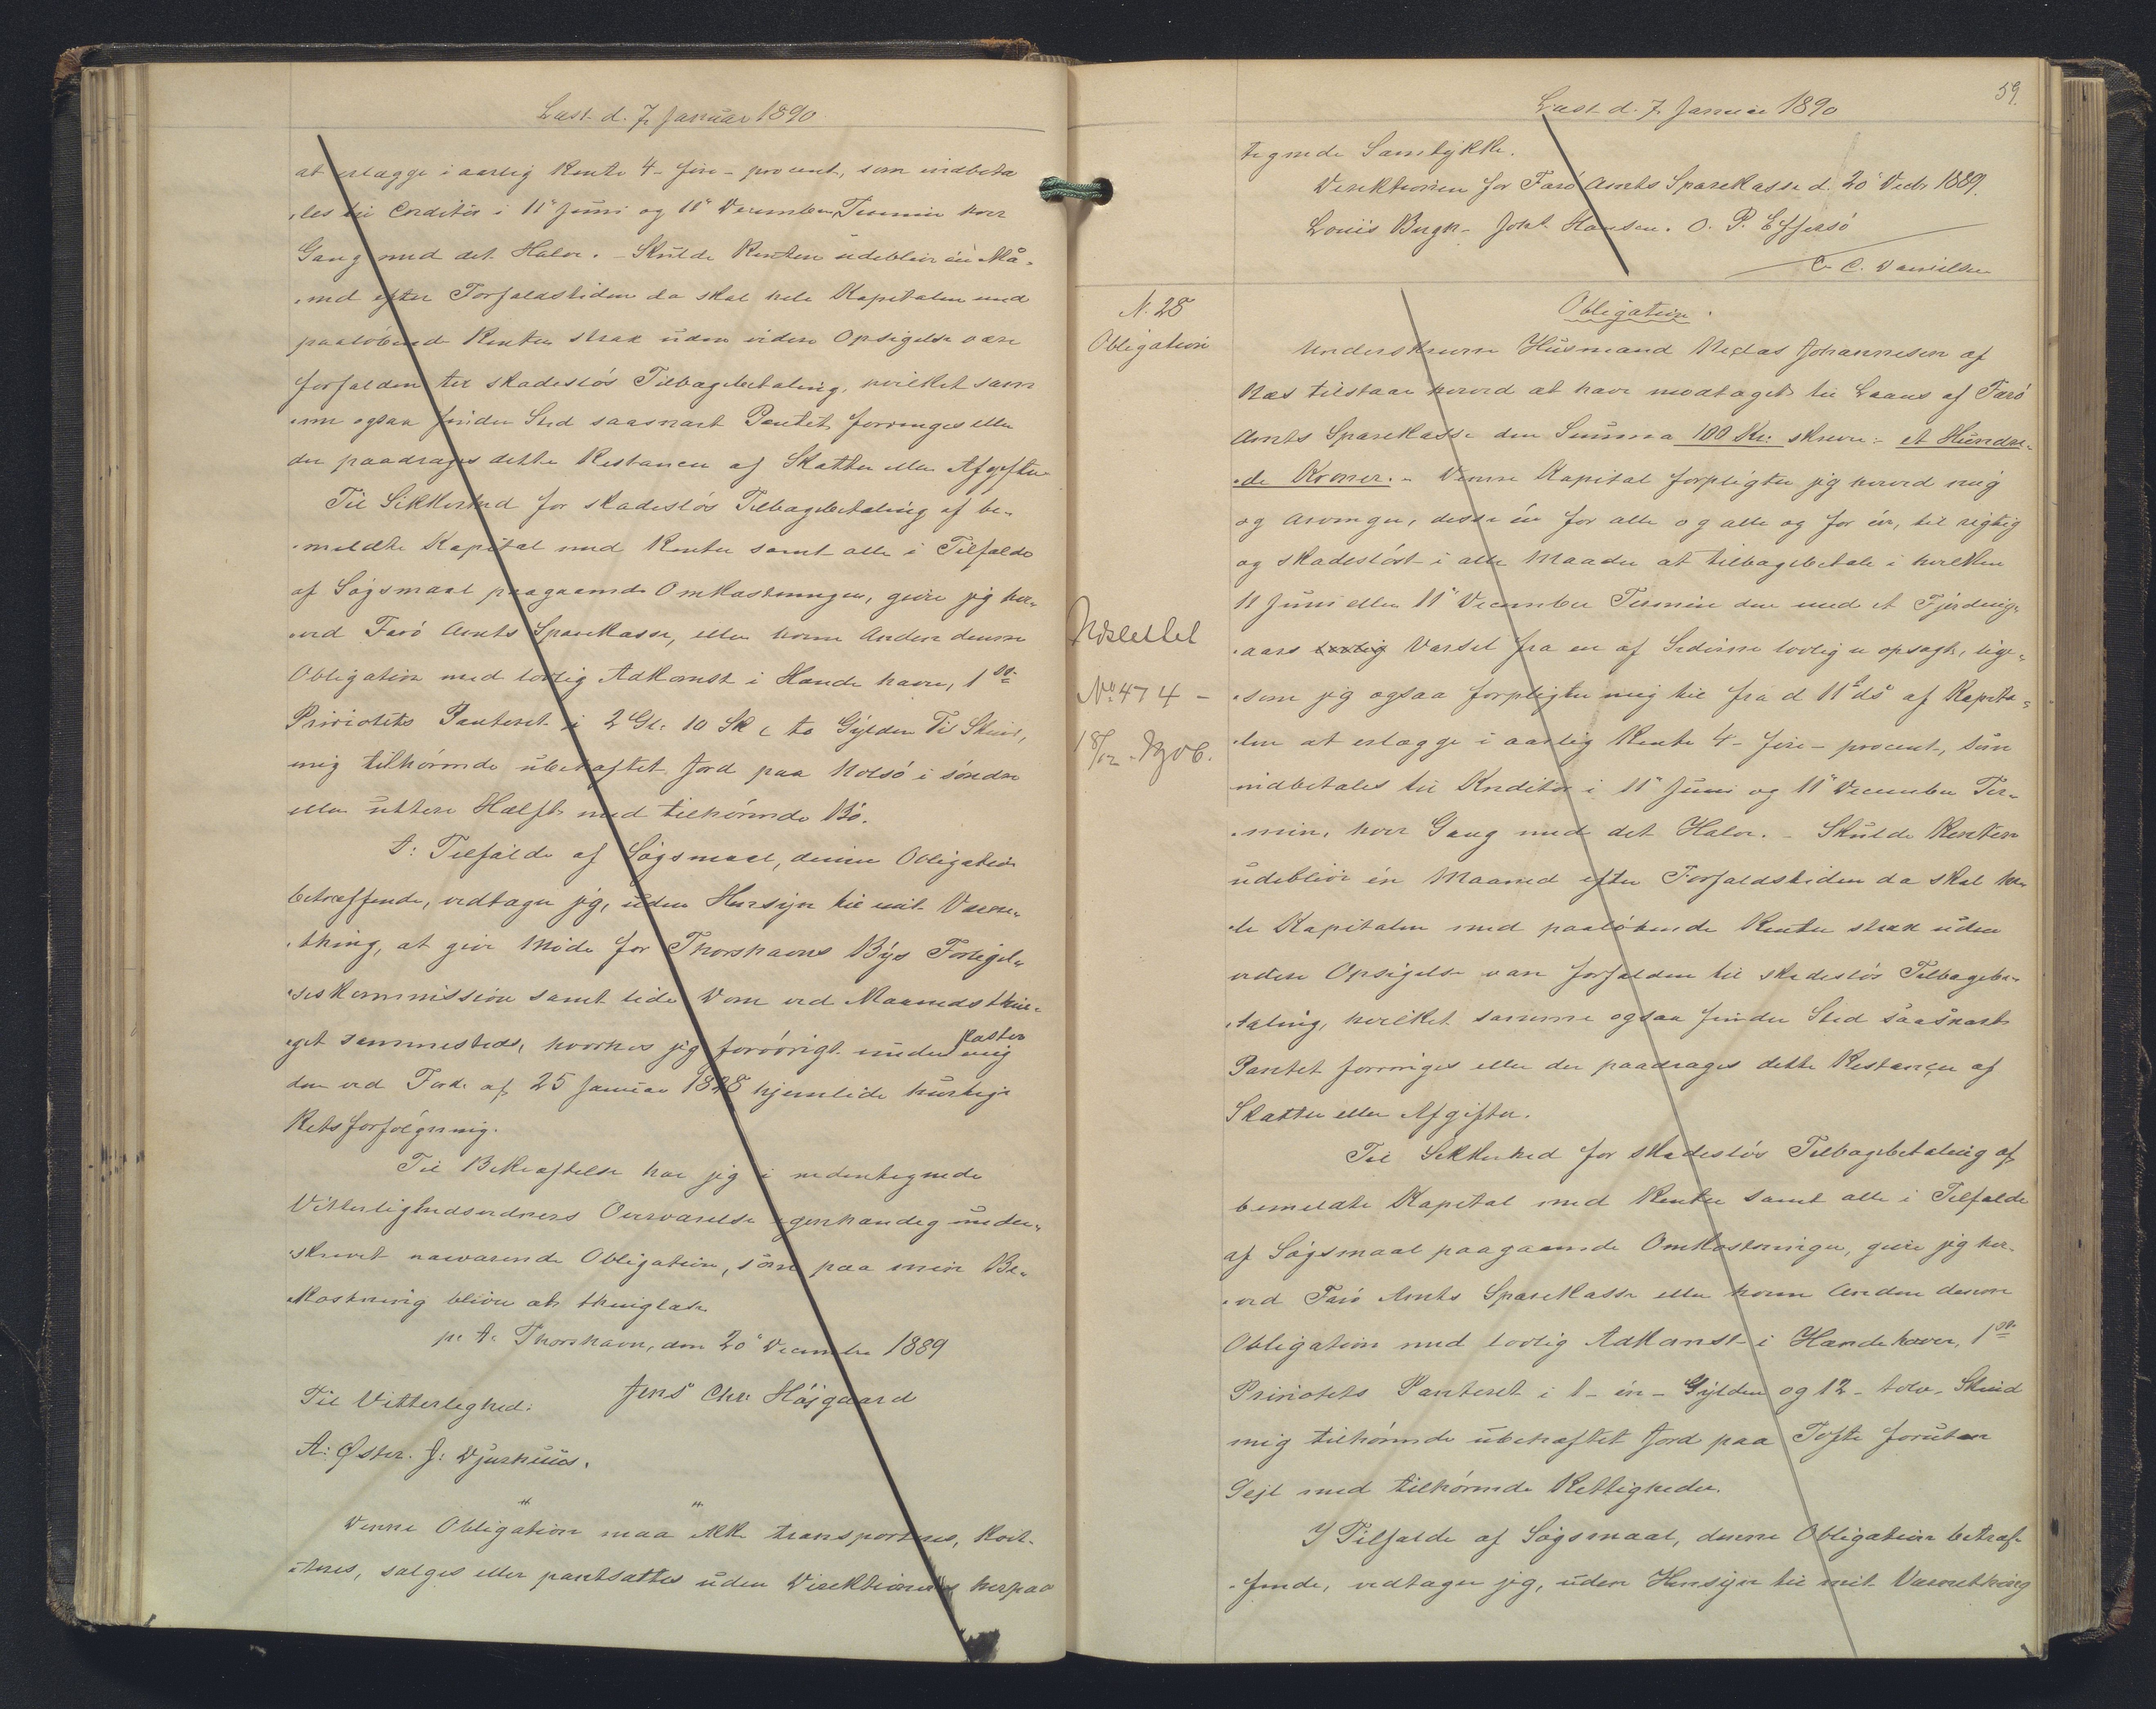 Læst d. 7 Januar 1890
at erlægge i aarlig Rente 4 - fire - procent, som indbeta
„les til Creditor i 11te Juni og 11te December Termin hver
Gang med det Halve. - Skulde Renten udeblive én Må„
„ned efter Forfaldstiden da skal hele Kapitalen med
paaløbende Renter strax uden videre Opsigelse være
forfalden til skadesløs Tilbagebetaling, hvilket sam
„me ogsaa finder Sted saasnart Pantet forringes eller
der paadrages dette Restancer af Skatter eller Afgifter
Til Sikkerhed for skadesløs Tilbagebetaling af be„
„meldte Kapital med Renter samt alle i Tilfælde
af Søgsmaal paagaaende Omkostninger, giver jeg her„
„ved Færø Amts Sparekasse, eller hvem Anden denne
Obligation med lovlig Adkomst i Hænde haver, 1ste
Prioritets Panteret i 2 Gl: 10 Sk: to Gylden Ti Skind,
mig tilhørende ubehæftet Jord paa Nolsø i søndre
eller uttere Hælft med tilhørende Bø.
I: Tilfælde af Søgsmaal, denne Obligation
betræffende, vedtager jeg, uden Hensyn til mit Værne„
„thing, at give Møde for Thorshavns Bys Forligel„
„seskommission samt lide Dom ved Maanedsthin„
„get sammesteds, hvorhos jeg forøvrigt underkaster mig
den ved Frdn. af 25 Januar 1828 hjemlede hurtige
Retsforfølgning.
Til Bekræftelse har jeg i nedentegnede
Vitterlighedsvidners Overværelse egenhændig under„
„skrevet nærværende Obligation, som paa min Be„
„kostning bliver at thinglæse
p. t. Thorshavn, den 20de December 1889
Til Vitterlighed: Jens Chr: Højgaard
A: Øster. J: Djurhuus.
Denne Obligation maa ikke transporteres, kvit„
„teres, sælges eller pantsættes uden Direktionens herpaa
59.
Læst d. 7 Januar 1890
tegnede Samtykke.
Direktionen for Færø Amts Sparekasse d. 20de Decbr 1889.
Louis Bergh - Joh. Hansen. O. P. Effersø
C. C. Danielsen
N. 28
Obligation
Obligation.
Underskrevne Husmand Niclas Johannesen af
Næs tilstaar herved at have modtaget til Laans af Færø
Amts Sparekasse den Summa 100 Kr: skriver: et Hundre„
„de Kroner. - Denne Kapital forpligter jeg herved mig
og Arvinger, disse én for alle og alle og for én, til rigtig
og skadesløst i alle Maader at tilbagebetale i hvilken
11 Juni eller 11te December Termin der med et Fjerding„
„aars lovlig Varsel fra en af Siderne lovlig er opsagt, lige„
„som jeg ogsaa forpligter mig til fra d 11te ds af Kapita„
„len at erlægge i aarlig Rente 4 - fire - procent, som
indbetales til Kreditor i 11te Juni og 11te December Ter„
„min, hver Gang med det Halve. - Skulde Renten
udeblive én Maaned efter Forfaldstiden da skal he„
„le Kapitalen med paaløbende Renter strax uden
videre Opsigelse være forfalden til skadesløs Tilbagebe„
„taling, hvilket samme ogsaa finder Sted saasnart
Pantet forringes eller der paadrages dette Restancer af
Skatter eller Afgifter.
Til Sikkerhed for skadesløs Tilbagebetaling af
bemeldte Kapital med Renter samt alle i Tilfælde
af Søgsmaal paagaaende Omkostninger, giver jeg her„
„ved Færø Amts Sparekasse eller hvem Anden denne
Obligation med lovlig Adkomst i Hænde haver, 1ste
Prioritets Panteret i 1 - én - Gylden og 12 - tolv - Skind
mig tilhørende ubehæftet Jord paa Tofte foruten
Gejl med tilhørende Rettigheder.
I Tilfælde af Søgsmaal, denne Obligation betræf„
„fende, vedtager jeg, uden Hensyn til mit Værnething
Udslettet
No 474 -
18/12. 1906.